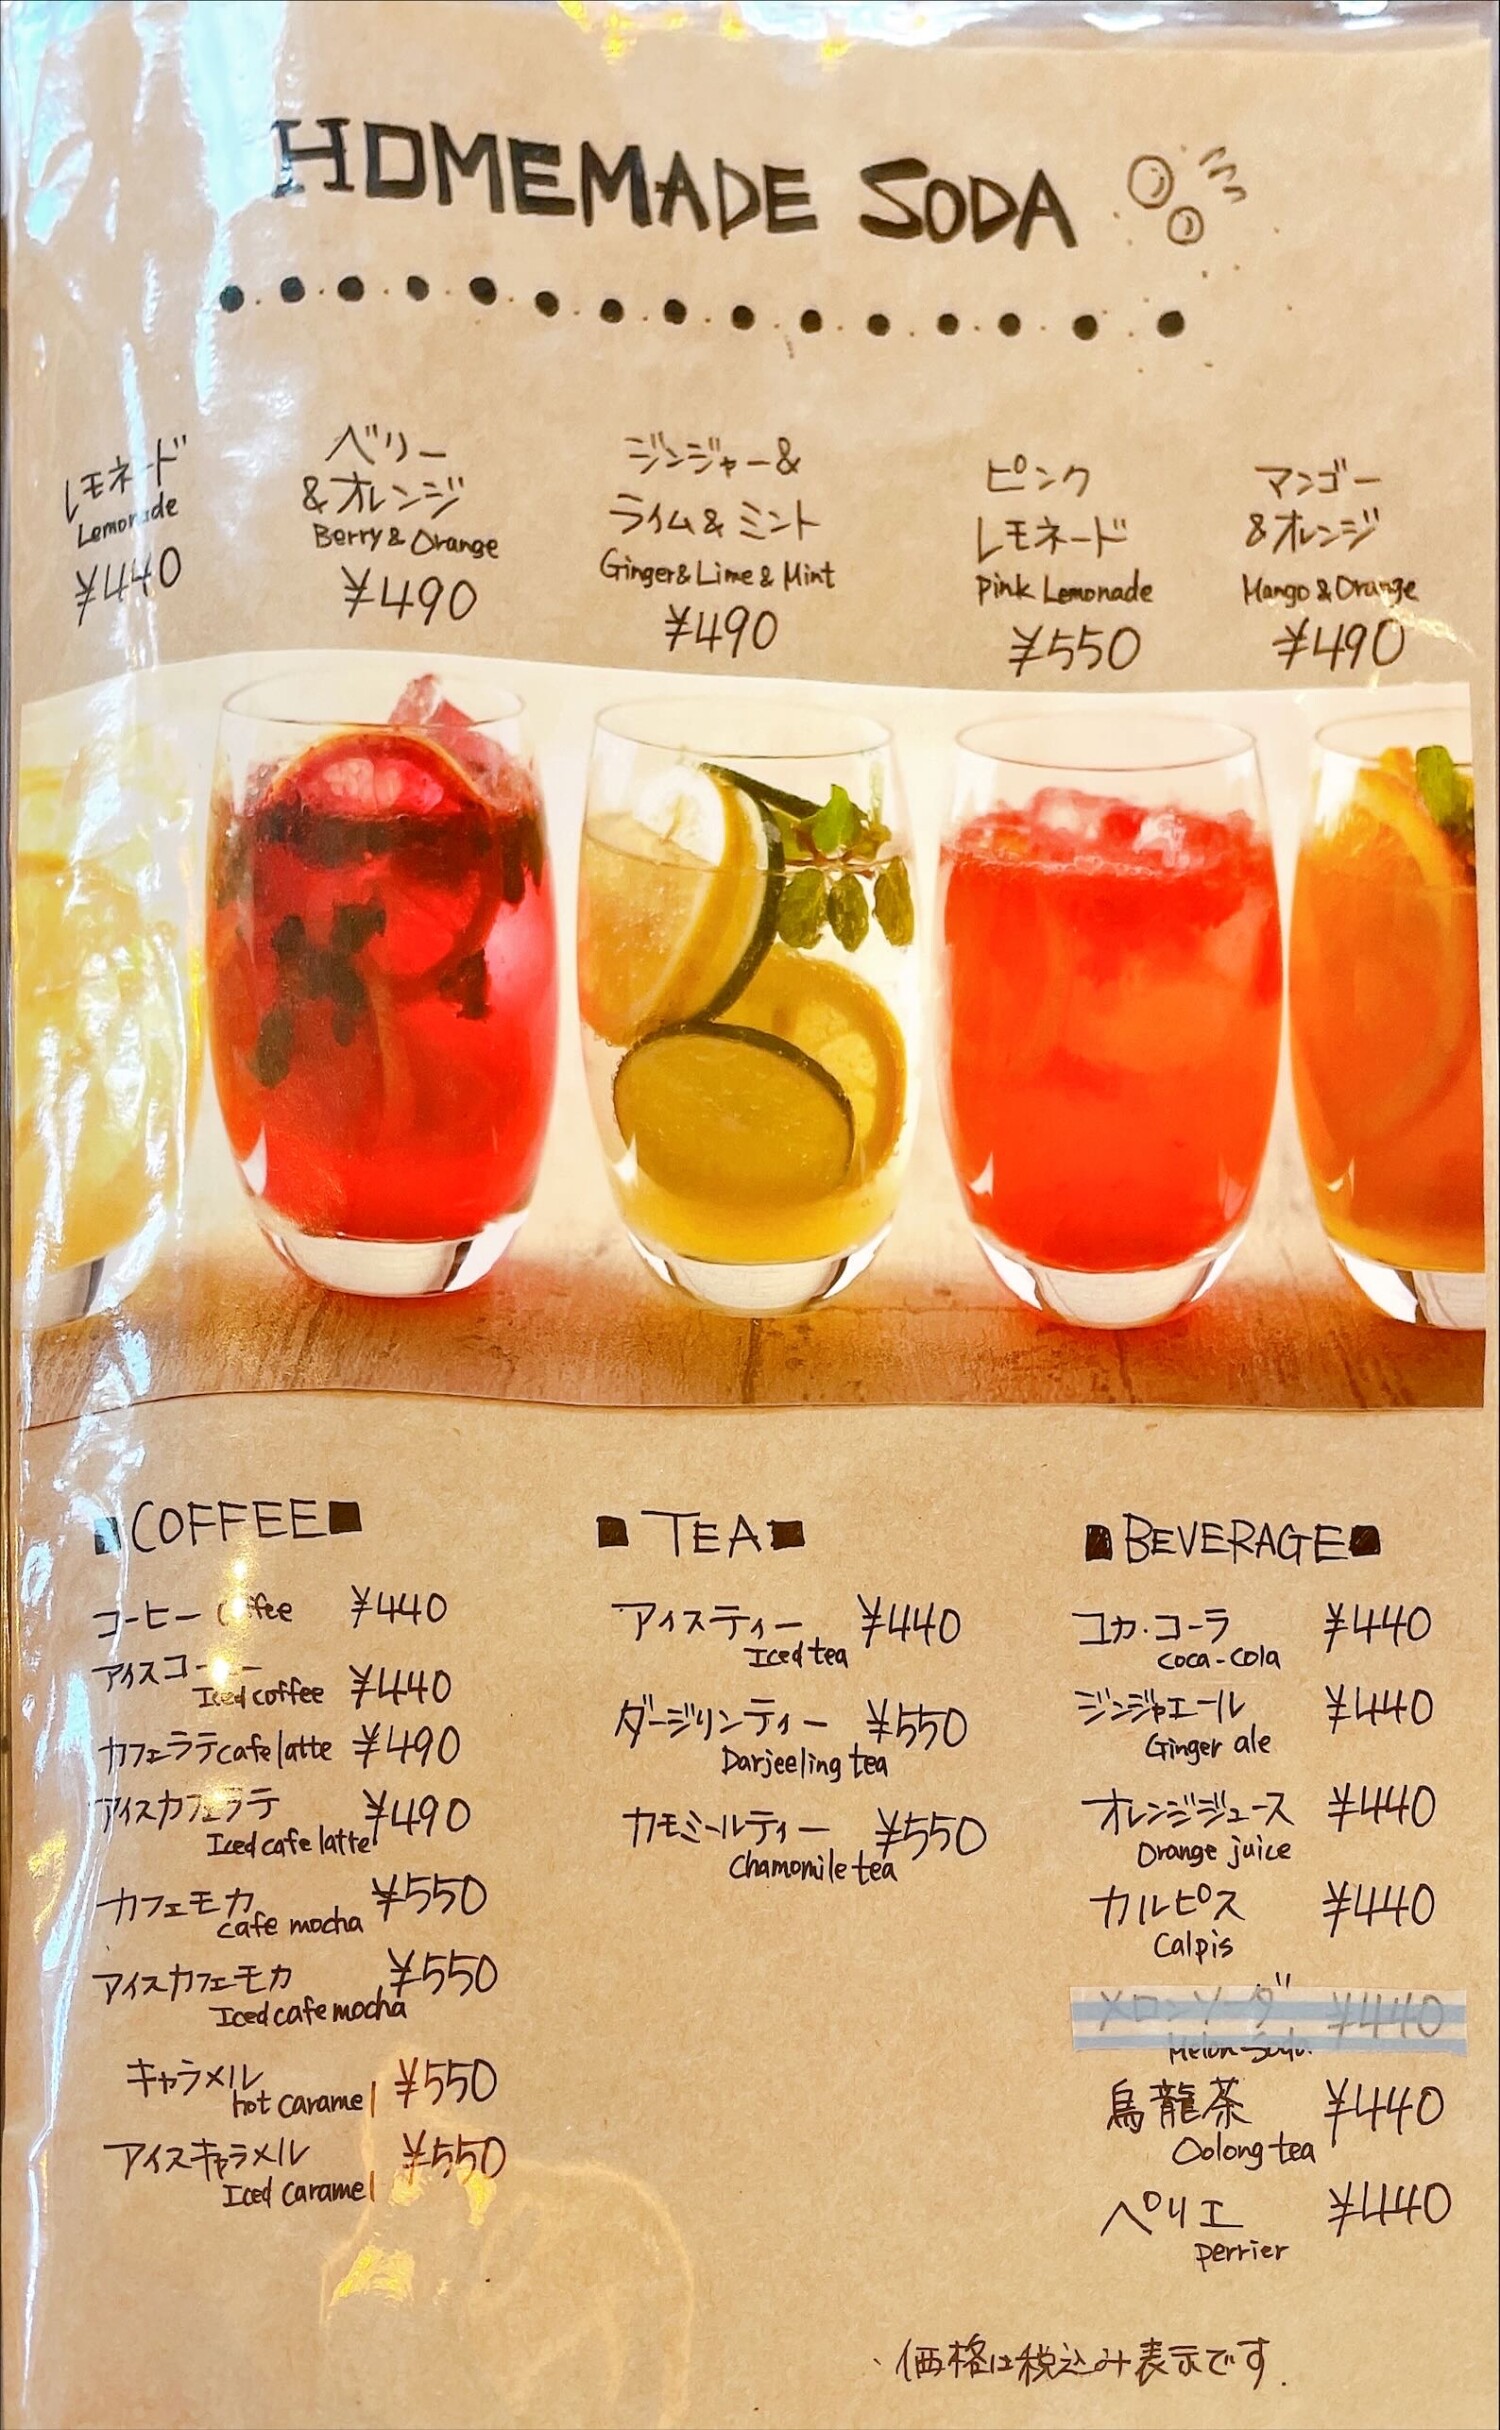 HOMEMADE SODA
レモネード
Lemonade
¥440
ベリー
&オレンジ
Berry & Orange
¥490
ジンジャー&
ライム&ミント
Ginger & Lime & Mint
¥490
ピンク
レモネード
Pink Lemonade
¥550
マンゴー
&オレンジ
Mango & Orange
¥490
■COFFEE■
コーヒー Coffee ¥440
アイスコーヒー
Iced coffee ¥440
カフェラテ cafe latte ¥490
アイスカフェラテ ¥490
Iced cafe latte
カフェモカ ¥550
cafe mocha
アイスカフェモカ ¥550
Iced cafe mocha
キャラメル ¥550
hot caramel
アイスキャラメル ¥550
Iced caramel
■TEA■
アイスティー ¥440
Iced tea
ダージリンティー ¥550
Darjeeling tea
カモミールティー ¥550
Chamomile tea
■BEVERAGE■
コカ・コーラ ¥440
coca-cola
ジンジャエール ¥440
Ginger ale
オレンジジュース ¥440
Orange juice
カルピス ¥440
Calpis
メロンソーダ ¥440
Melon Soda
烏龍茶 ¥440
Oolong tea
ペリエ ¥440
perrier
、価格は税込み表示です.